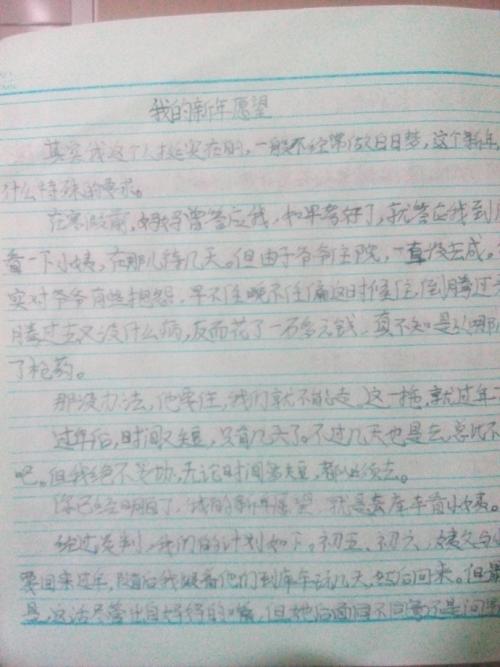 我的新年愿望
其实我这个人挺实在的，一般不经常做白日梦，这个新年，
什么特殊的要求。
在寒假前，妈妈曾答应我，如果考好了，就答应我到
看一下小姨，在那儿待几天。但由于爷爷住院，一直没去成。
实对爷爷有些抱怨，早不住晚不住偏这时候住，倒腾过
腾过去又没什么病，反而花了一万多元钱，真不知是
了枪药。
那没办法，他要住，我们就不能走，这一拖，就过年
过年后，时间又短，只有几天了。不过几天也是去，总比不
吧。但我绝不妥协，无论时间多短，都必须去。
你已经明白了，我的新年愿望，就是去库车看小姨。
经过谈判，我们的计划如下。初五、初六，姨父与
要回来过年，随后我跟着他们到库车玩几天，然后回来。但
是，这话尽管出自妈妈的口，但她后面